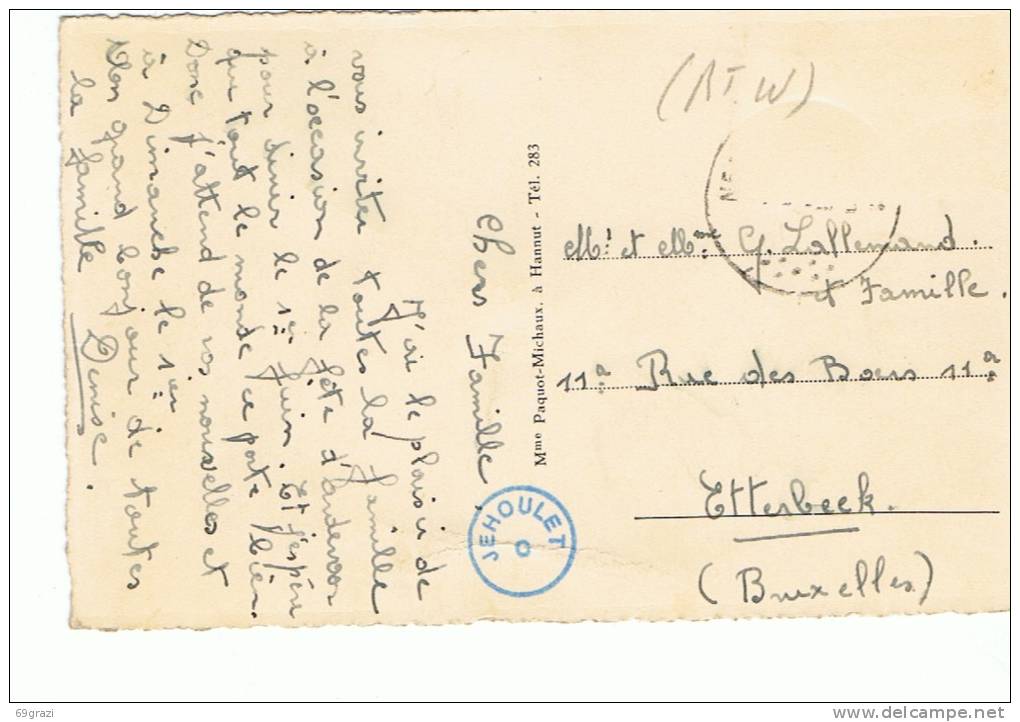 Chers Famille.
J'ai le plaisir de
vous inviter toutes la famille
à l'occasion de la fête d'
pour diner le 1er Juin. Et j'espère
que tout le monde ce porte bien.
Donc j'attend de vos nouvelles et
à Dimanche le 1ier
Un grand bonjour de toutes
la famille Denise.
Mme Paquot-Michaux. à Hannut - Tél. 283
JEHOULET
O
(RTW)
Mr et Mme G. Lallemand.
et Famille.
11a Rue des Boers 11a
Etterbeek.
(Bruxelles)
69grazi
delcampe.net